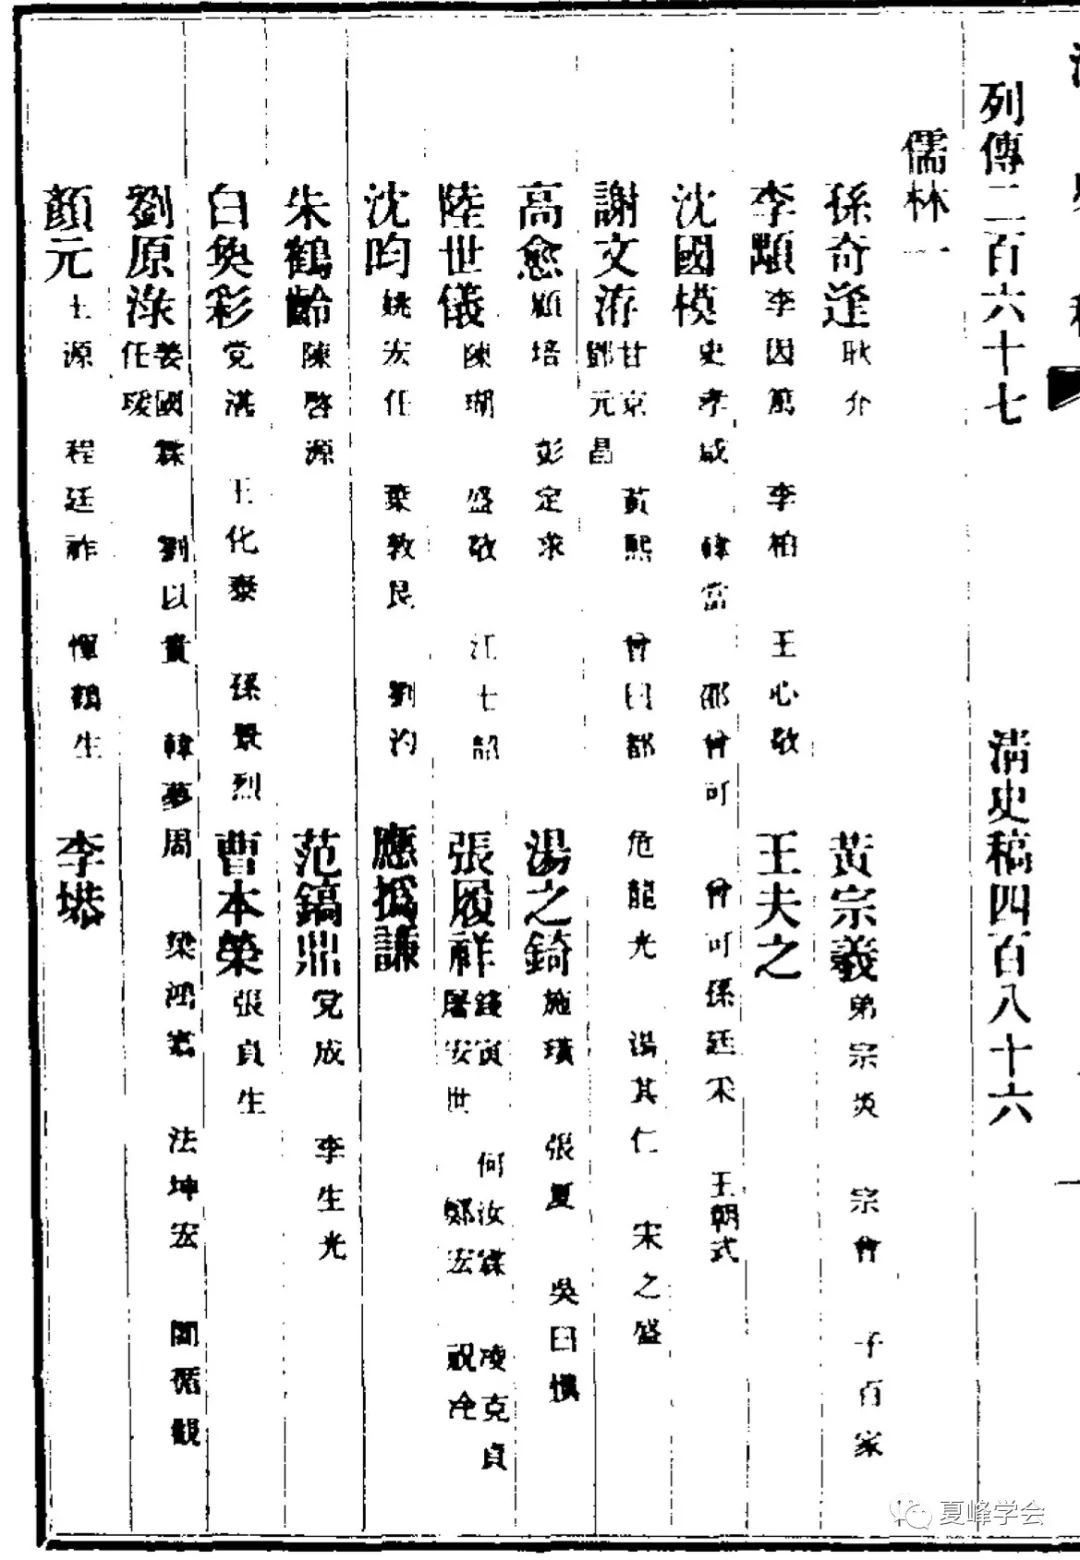 列傳二百六十七 清史稿四百八十六
儒林一
孫奇逢 耿介 黃宗羲 弟宗炎 宗會 子百家
李顒 李因篤 李柏 王心敬 王夫之
沈國模 史孝咸 韓當 邵曾可 曾可孫廷采 王朝式
謝文洊 甘京 黃熙 曾曰都 危龍光 湯其仁 宋之盛 鄧元昌
高愈 顧培 彭定求 湯之錡 施璜 張夏 吳曰慎
陸世儀 陳瑚 盛敬 江士韶 張履祥 錢寅 何汝霖 凌克貞 屠安世 鄭宏 祝洤
沈昀 姚宏任 葉敦艮 劉汋 應撝謙
朱鶴齡 陳啓源 范鎬鼎 党成 李生光
白奐彩 党湛 王化泰 孫景烈 曹本榮 張貞生
劉原淥 姜國霖 劉以貴 韓夢周 梁鴻翥 法坤宏 閻循觀 任瑗
顏元 王源 程廷祚 惲鶴生 李塨
夏峰学会